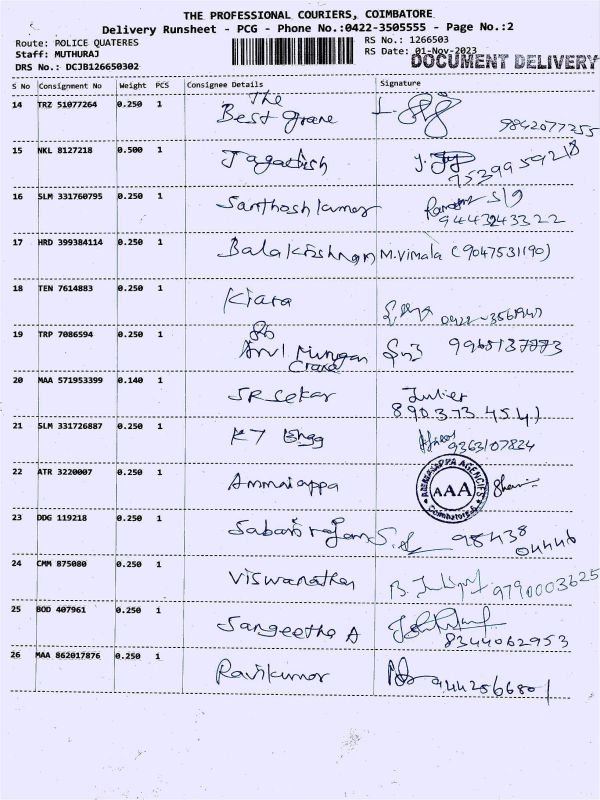 THE PROFESSIONAL COURIERS, COIMBATORE
Delivery Runsheet - PCG - Phone No.:0422-3505555 - Page No.:2
Route: POLICE QUATERES
Staff: MUTHURAJ
DRS No.: DCJB126650302
RS No.: 1266503
RS Date: 01-Nov-2023
DOCUMENT DELIVERY
S No Consignment No Weight PCS Consignee Details Signature
14 TRZ 51077264 0.250 1 The Best Grane 9842077255
15 NKL 8127218 0.500 1 Jagadish 9539959218
16 SLM 331760795 0.250 1 Santhosh kumar S/g 9443243322
17 HRD 399384114 0.250 1 Balakrishnan M.Vimala (9047531190)
18 TEN 7614883 0.250 1 Kiara 0422-3561947
19 TRP 7086594 0.250 1 Arul Murugan
20 MAA 571953399 0.140 1 SR Sekar Juliet 890 373 4541
21 SLM 331726887 0.250 1 KT Engg 9363107824
22 ATR 3220007 0.250 1 Ammaiappa AMMAIAPPA AGENCIES AAA Coimbatore
23 DDG 119218 0.250 1 98438 04446
24 CMM 875080 0.250 1 Viswanathan 9790003625
25 BOD 407961 0.250 1 Sangeetha A 8344062953
26 MAA 862017876 0.250 1 Ravikumar 9442566801